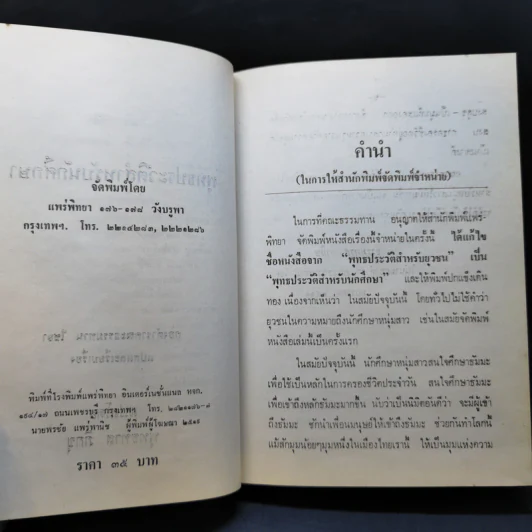 จัดพิมพ์โดย
แพร่พิทยา ๑๗๖-๑๗๘ วังบูรพา
กรุงเทพฯ. โทร. ๒๒๑๔๒๘๓, ๒๒๒๑๒๘๖
พิมพ์ที่โรงพิมพ์แพร่พิทยา อินเตอร์เนชั่นแนล หจก.
ถนนเพชรบุรี กรุงเทพฯ โทร.
นายพรชัย แพร่พานิช ผู้พิมพ์ผู้โฆษณา
ราคา ๓๕ บาท
คำนำ
(ในการให้สำนักพิมพ์จัดพิมพ์จำหน่าย)
ในการที่คณะธรรมทาน อนุญาตให้สำนักพิมพ์แพร่-
พิทยา จัดพิมพ์หนังสือเรื่องนี้จำหน่ายในครั้งนี้ ได้แก้ไข
ชื่อหนังสือจาก “พุทธประวัติสำหรับยุวชน” เป็น
“พุทธประวัติสำหรับนักศึกษา” และให้พิมพ์ปกแข็งเดิน
ทอง เนื่องจากเห็นว่า ในสมัยปัจจุบันนี้ โดยทั่วไปไม่ใช้คำว่า
ยุวชนในความหมายถึงนักศึกษาหนุ่มสาว เช่นในสมัยจัดพิมพ์
หนังสือเล่มนี้เป็นครั้งแรก
ในสมัยปัจจุบันนี้ นักศึกษาหนุ่มสาวสนใจศึกษาธัมมะ
เพื่อใช้เป็นหลักในการครองชีวิตประจำวัน สนใจศึกษาธัมมะ
เพื่อเข้าถึงหลักธัมมะมากขึ้น นับว่าเป็นนิมิตอันดีว่า จะมีผู้เข้า
ถึงธัมมะ ชักนำเพื่อนมนุษย์ให้เข้าถึงธัมมะ ช่วยกันทำโลกนี้
แม้สักมุมน้อยๆมุมหนึ่งในเมืองไทยเรานี้ ให้เป็นมุมแห่งความ